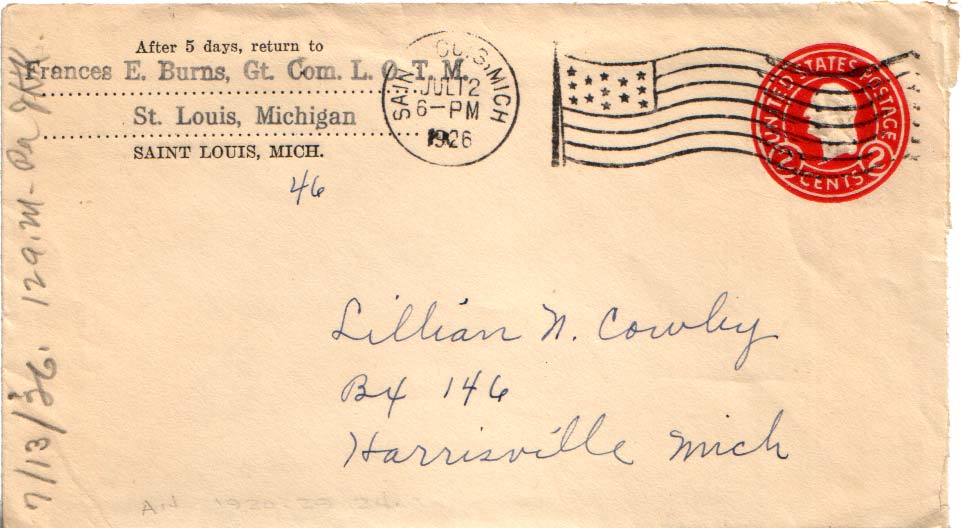 After 5 days, return to
Frances E. Burns, Gt. Com. L. O. T. M.
St. Louis, Michigan
SAINT LOUIS, MICH.
46
SAIN OUIS, MICH
JUL 12
6-PM
1926
UNITED STATES POSTAGE
2 CENTS 2
Lillian N. Cowley
BX 146
Harrisville Mich
7/13/26.